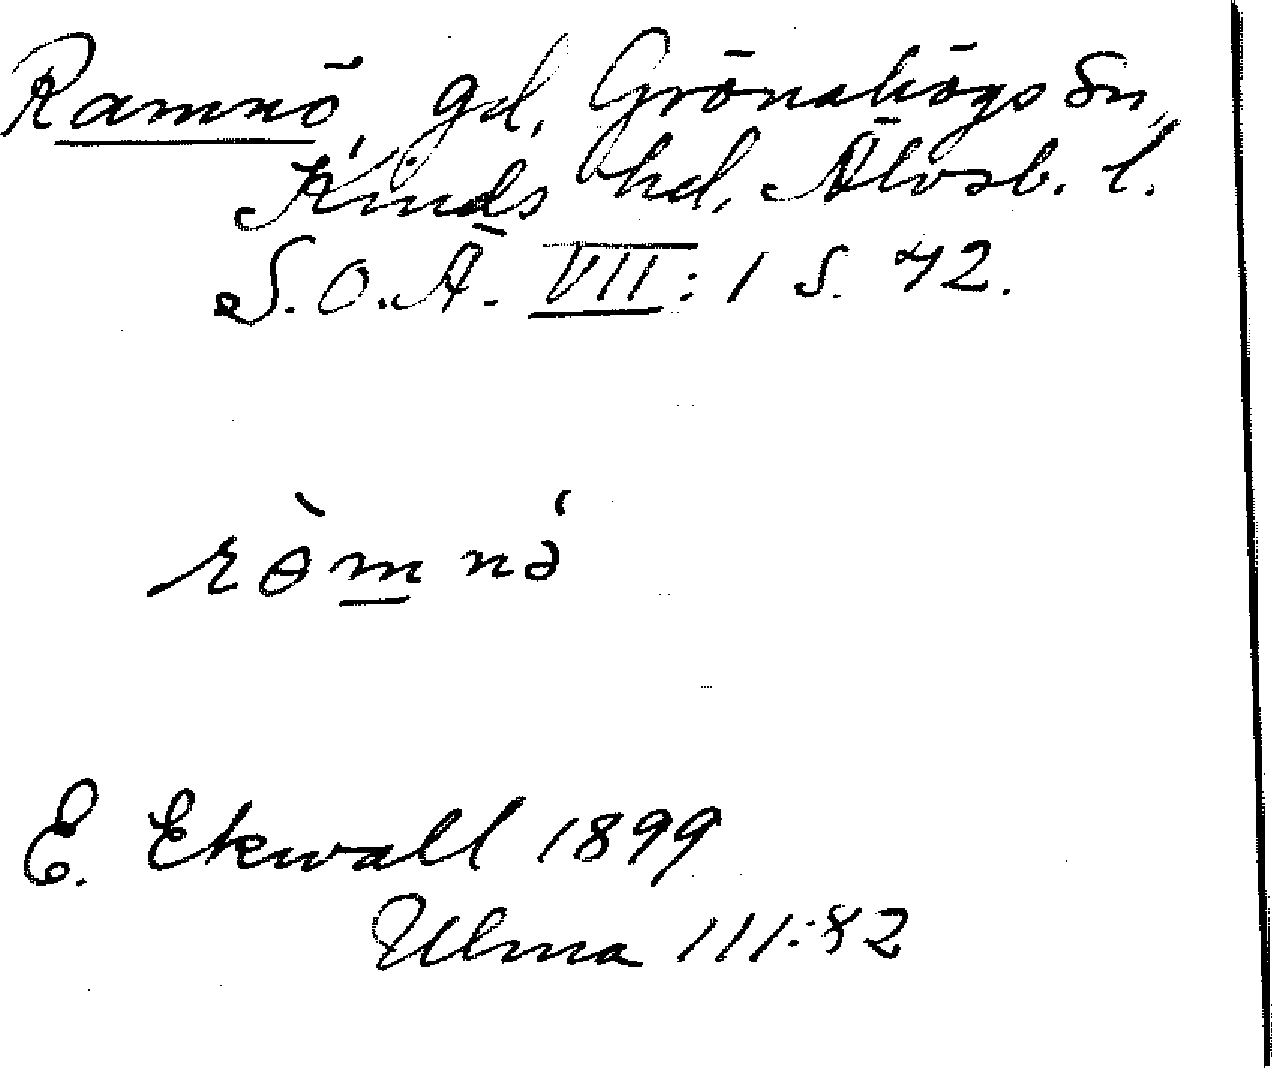 Ramnö, gd, Grönahögs sn,
Kinds hd, Älvsb. l.
S.O.Ä. VII: 1 S. 42.
rə̀mnə́
E. Ekwall 1899
Ulma 111:82